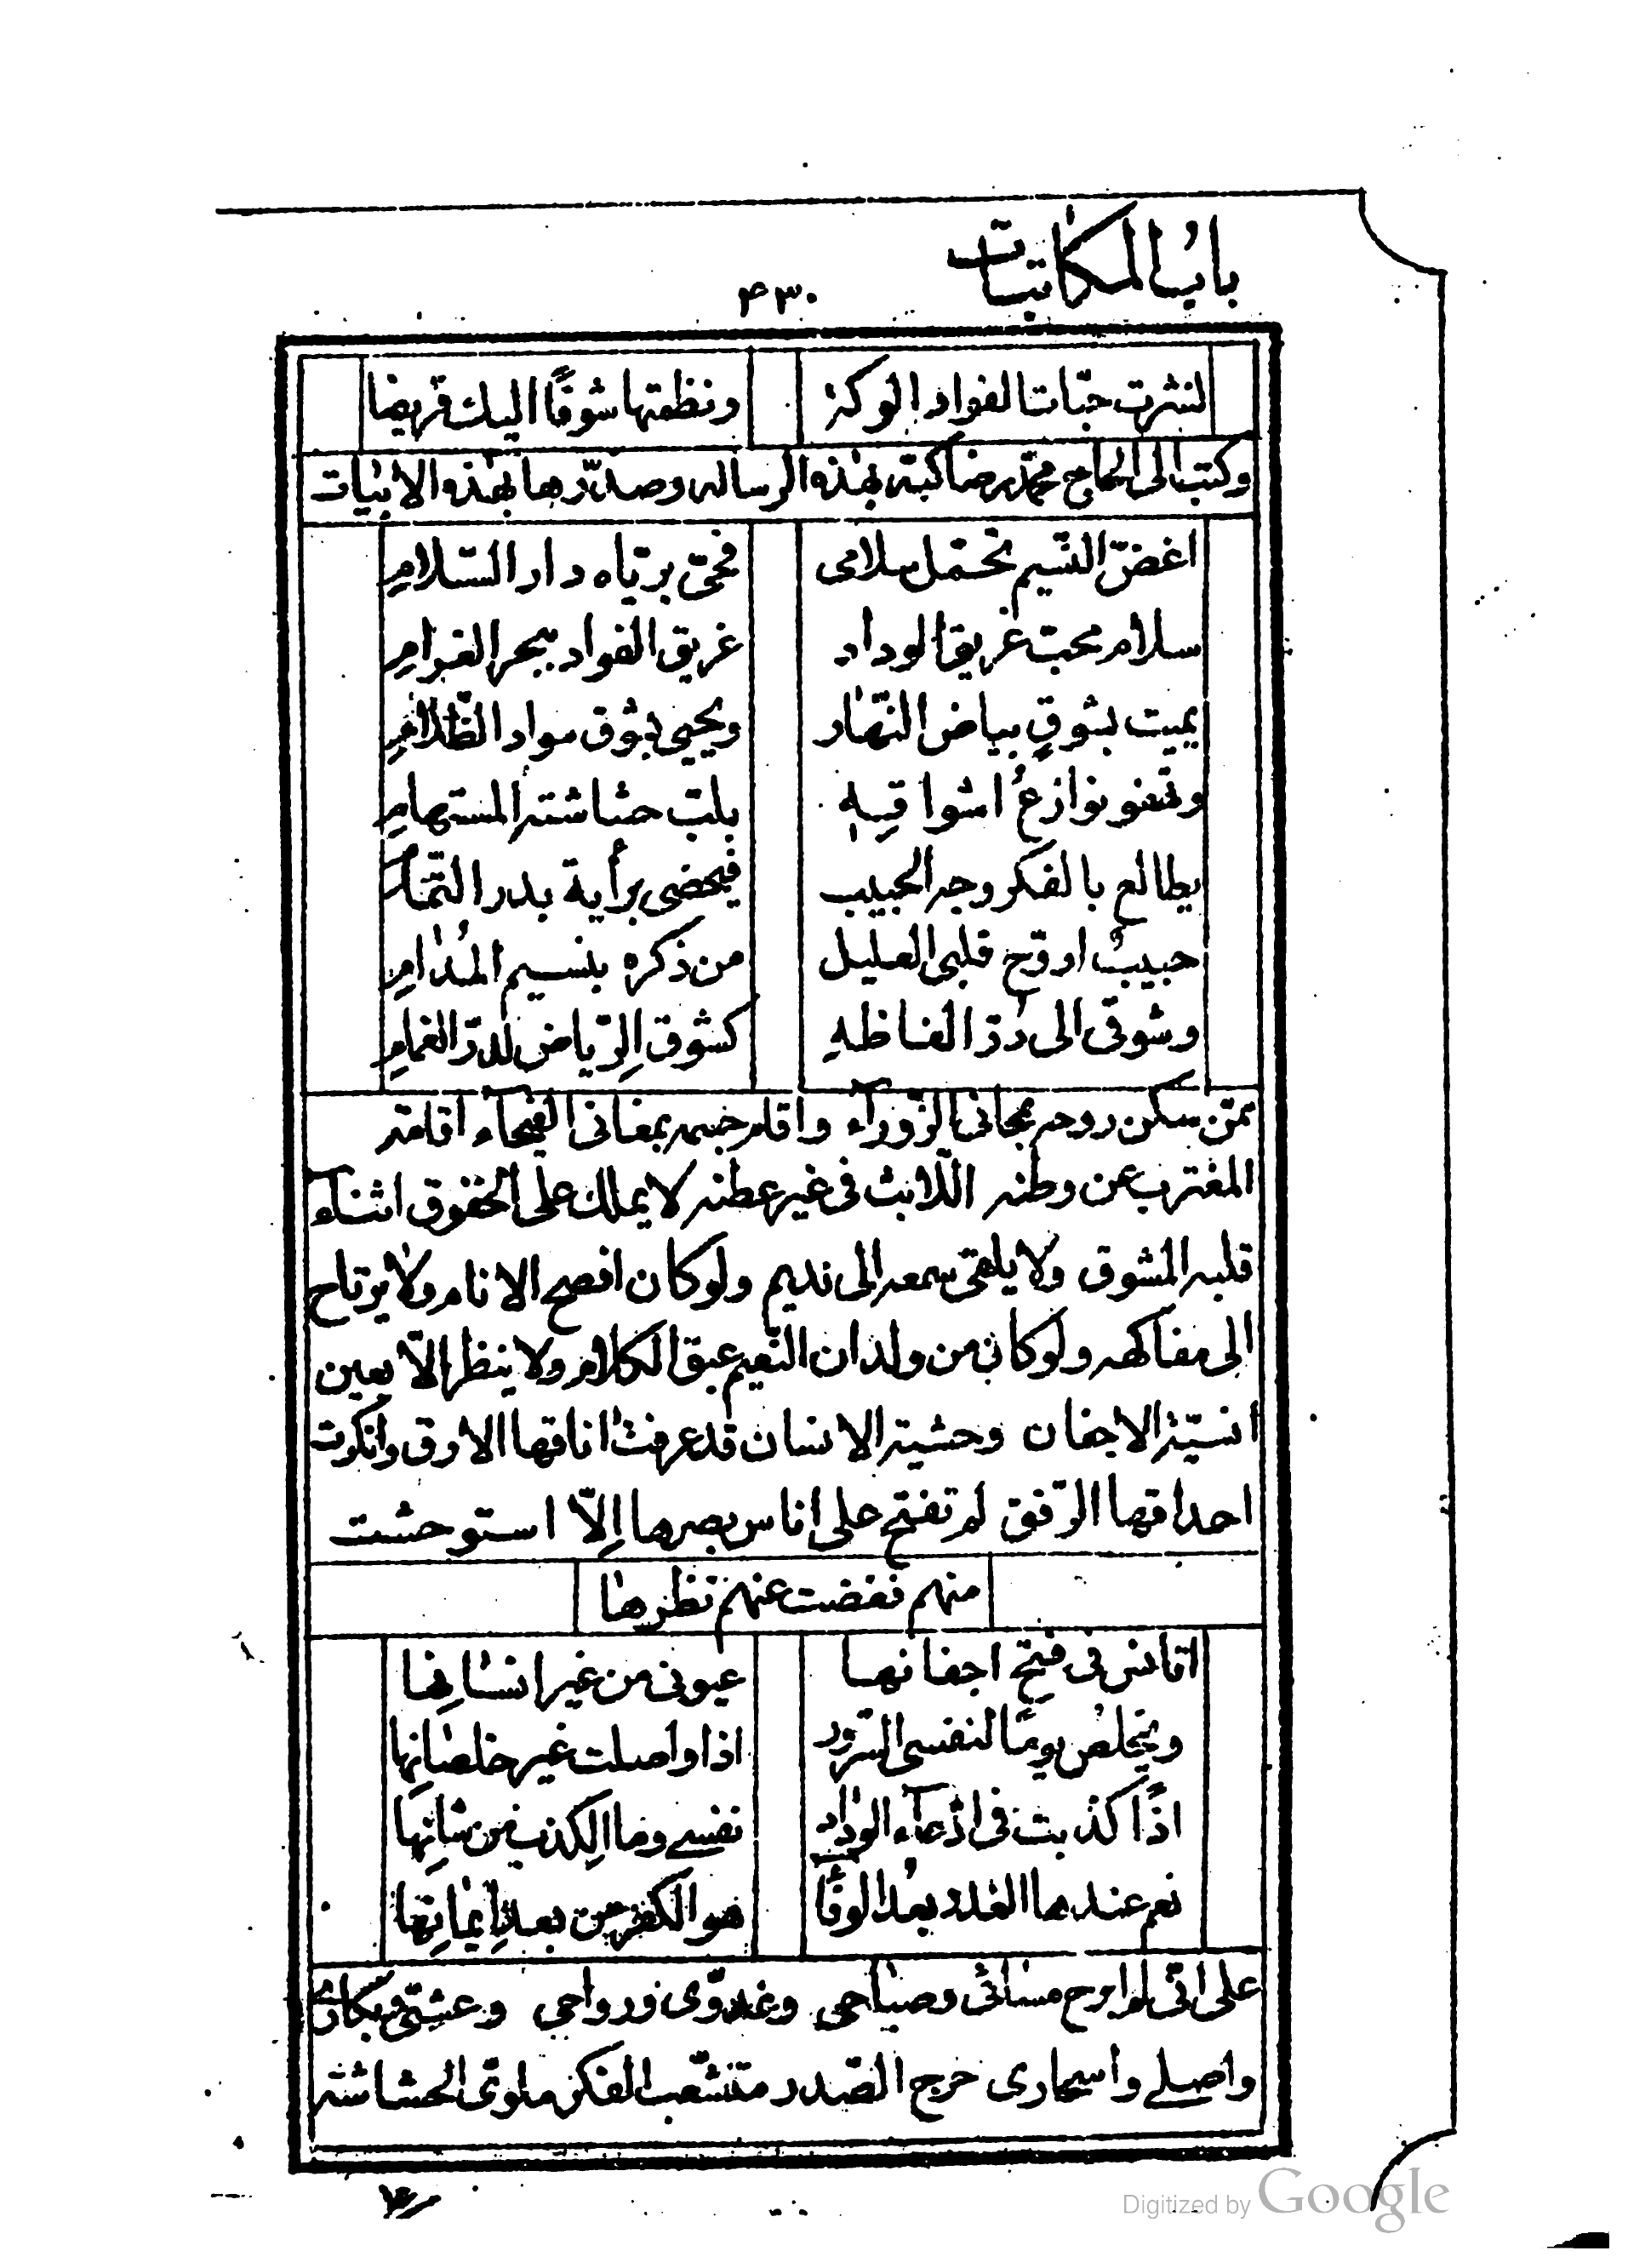 باب المكاتبات
۴۳۰
لنثرت حبّات الفواد الوكة ونظمتها شوقًا اليك قريضا
وكتب الى الحاج محمّد رضا كبته بهذه الرساله وصدّرها بهذه الابيات
اغضّ النسيم تحمّل سلامى فحىّ بريّاه دار السّلامِ
سلام محبّ غريق الوداد غريق الفواد ببحر الغرامِ
يميت بشوقٍ بياض النّهار ويحيى بشوق سواد الظّلامِ
وتهفو نوازعُ اشواقِهِ بلبّ حشاشته المستهامِ
يطالع بالفكر وجه الحبيب فيحضى برأية بدر التّمام
حبيبٌ اروّح قلبى العليل من ذكره بنسيم المُدامِ
وشوقى الى دُرّ الفاظهِ كشوق الرّياض لدرّ الغمامِ
ممّن سكن روحه بمجانى الزّوراء واقام جسمه بمغانى الفيحاء اقامة
المغترب عن وطنه اللّابث فى غير عطنه لا يملك على الخفوق اثناء
قلبه المشوق ولا يلقى سمعه الى نديم ولو كان افصح الانام ولا يرتاح
الى مفاكهه ولو كان من ولدان النّعيم عبق الكلام ولا ينظر الّا بعين
انسيّة الاجفان وحشية الانسان قد عرفت اناقها الارق وانكرت
احداقها الرّفق لم تفتح على اناس بصرها اِلّا استوحشت
منهم فغضت عنهم نظرها
اتانس فى فتح اجفانها عيونى من غير انسانِها
ويخلص يومًا لنفسى السّرور اذا واصلت غير خلصانها
اذًا كذبت فى ادّعاء الوداد نفسى وما الكذب من شانِها
نعم عندها الغدر بعد الوفا هو الكفر من بعد ايمانِها
على انّى لم ابرح مسائى وصباحى وغدوّى ورواحى وعشيّى وبكارى
واصلى واسحارى حرج الصّدر متشعّب الفكر ملوىّ الحشاشة